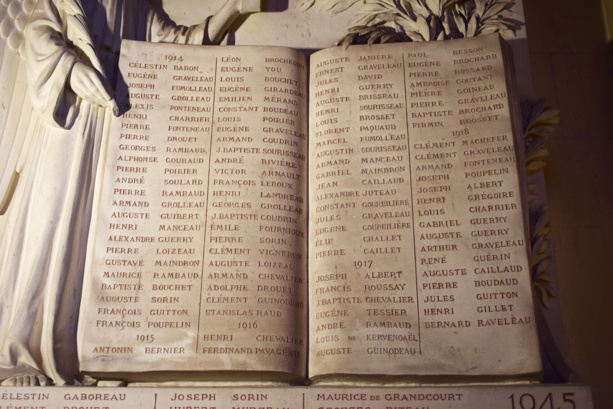 1914
CÉLESTIN BARON
EUGÈNE GRAVELEAU
JOSEPH FUMOLLEAU
AUGUSTE GROLLEAU
ALEXIS FONTENEAU
HENRI CHARRIER
PIERRE FONTENEAU
PIERRE DROUET
GEORGES RAMBAUD
ALPHONSE GOURAUD
PIERRE POIRIER
ANDRÉ SOULARD
PIERRE RAMBAUD
ARMAND GROLLEAU
AUGUSTE GUIBERT
HENRI MANCEAU
ALEXANDRE GUERRY
PIERRE LOIZEAU
GUSTAVE MAINDRON
MAURICE RAMBAUD
BAPTISTE BOUCHET
AUGUSTE SORIN
FRANÇOIS GUITTON
FRANÇOIS POUPELIN
1915
ANTONIN BERNIER
LÉON BROCHARD
EUGÈNE YOU
LOUIS BOUCHET
EUGÈNE GIRARDEAU
EMILIEN MÉRAND
CONSTANT BOUDEAU
LOUIS POIRIER
EUGÈNE GRAVELEAU
ARMAND COUDRIN
J.BAPTISTE SOURISSEAU
ANDRÉ RIVIÈRE
VICTOR ARNAULT
FRANÇOIS LEROUX
HENRI LANDREAU
GEORGES GROLLEAU
J.BAPTISTE COUDRIN
ÉMILE FOURNIOUX
PIERRE SORIN
CLÉMENT VIGNERON
AUGUSTE LOIZEAU
ARMAND CHEVALIER
ADOLPHE DROUET
CLÉMENT GUINODEAU
STANISLAS RAUD
1916
HENRI CHEVALIER
FERDINAND PAVAGEAU
AUGUSTE JANIÈRE
ERNEST GRAVELEAU
JULES DAVID
HENRI GUERRY
AUGUSTE BRISSEAU
JULES SOURISSEAU
LOUIS BROSSET
FLORENT PAQUAUD
MARCEL FUMOLLEAU
AUGUSTIN SOURISSEAU
ARMAND MANCEAU
GABRIEL MAINDRON
JEAN CAILLAUD
ALEXANDRE JUTEAU
CONSTANT GOUBILIÈRE
JULES GRAVELEAU
EUGÈNE GOUBILIÈRE
ÉLIE CHALLET
PIERRE CAILLET
1917
JOSEPH ALBERT
FRANCIS ROUSSAY
J.BAPTISTE CHEVALIER
EUGÈNE TESSIER
ANDRE RAMBAUD
LOUIS DE KERVENOAËL
AUGUSTE GUINODEAU
PAUL BESSON
EUGÈNE BROCHARD
PIERRE BOSSARD
AMBROISE COUTANT
PIERRE GOINEAU
PIERRE GRAVELEAU
BAPTISTE BROCHARD
FIRMIN BROSSET
1918
CLÉMENT MACHEFER
CLÉMENT GRAVELEAU
ARMAND FONTENEAU
JOSEPH POUPELIN
JOSEPH ALBERT
HENRI GRÉGOIRE
LOUIS CHARRIER
GABRIEL GUERRY
AUGUSTE GUERRY
ARTHUR GRAVELEAU
RENÉ GUÉRIN
AUGUSTE CAILLAUD
PIERRE BOUDAUD
JULES GUITTON
HENRI GILLET
BERNARD RAVELEAU
CÉLESTIN GABOREAU
JOSEPH SORIN
MAURICE DE GRANDCOURT
1945